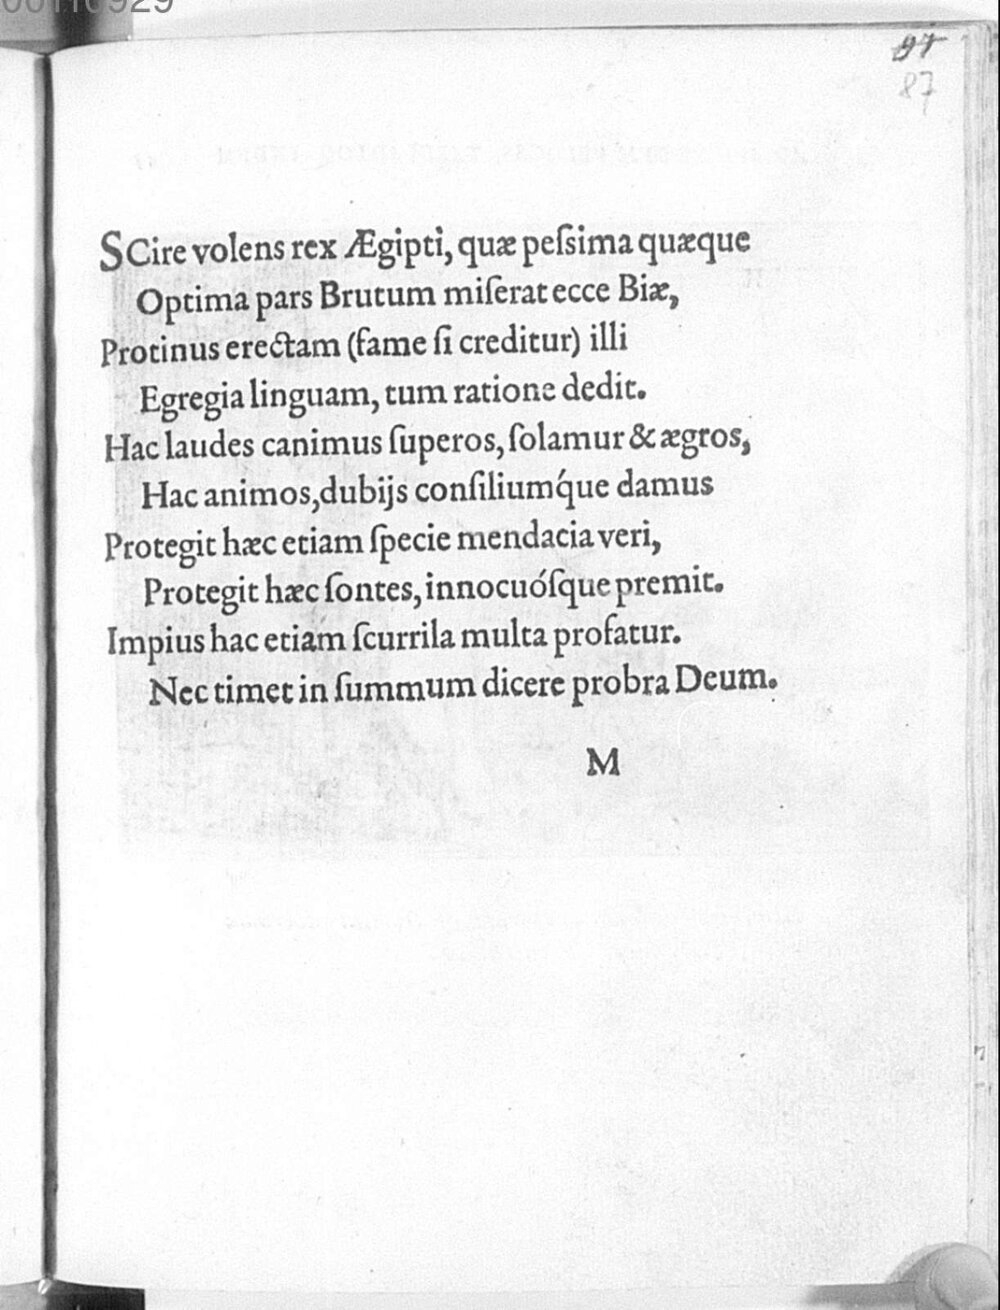 97
87
SCire volens rex Ægipti, quæ peſsima quæque
Optima pars Brutum miſerat ecce Biæ,
Protinus erectam (fame ſi creditur) illi
Egregia linguam, tum ratione dedit.
Hac laudes canimus ſuperos, ſolamur & ægros,
Hac animos, dubijs conſiliumq́ue damus
Protegit hæc etiam ſpecie mendacia veri,
Protegit hæc ſontes, innocuóſque premit.
Impius hac etiam ſcurrila multa profatur.
Nec timet in ſummum dicere probra Deum.
M